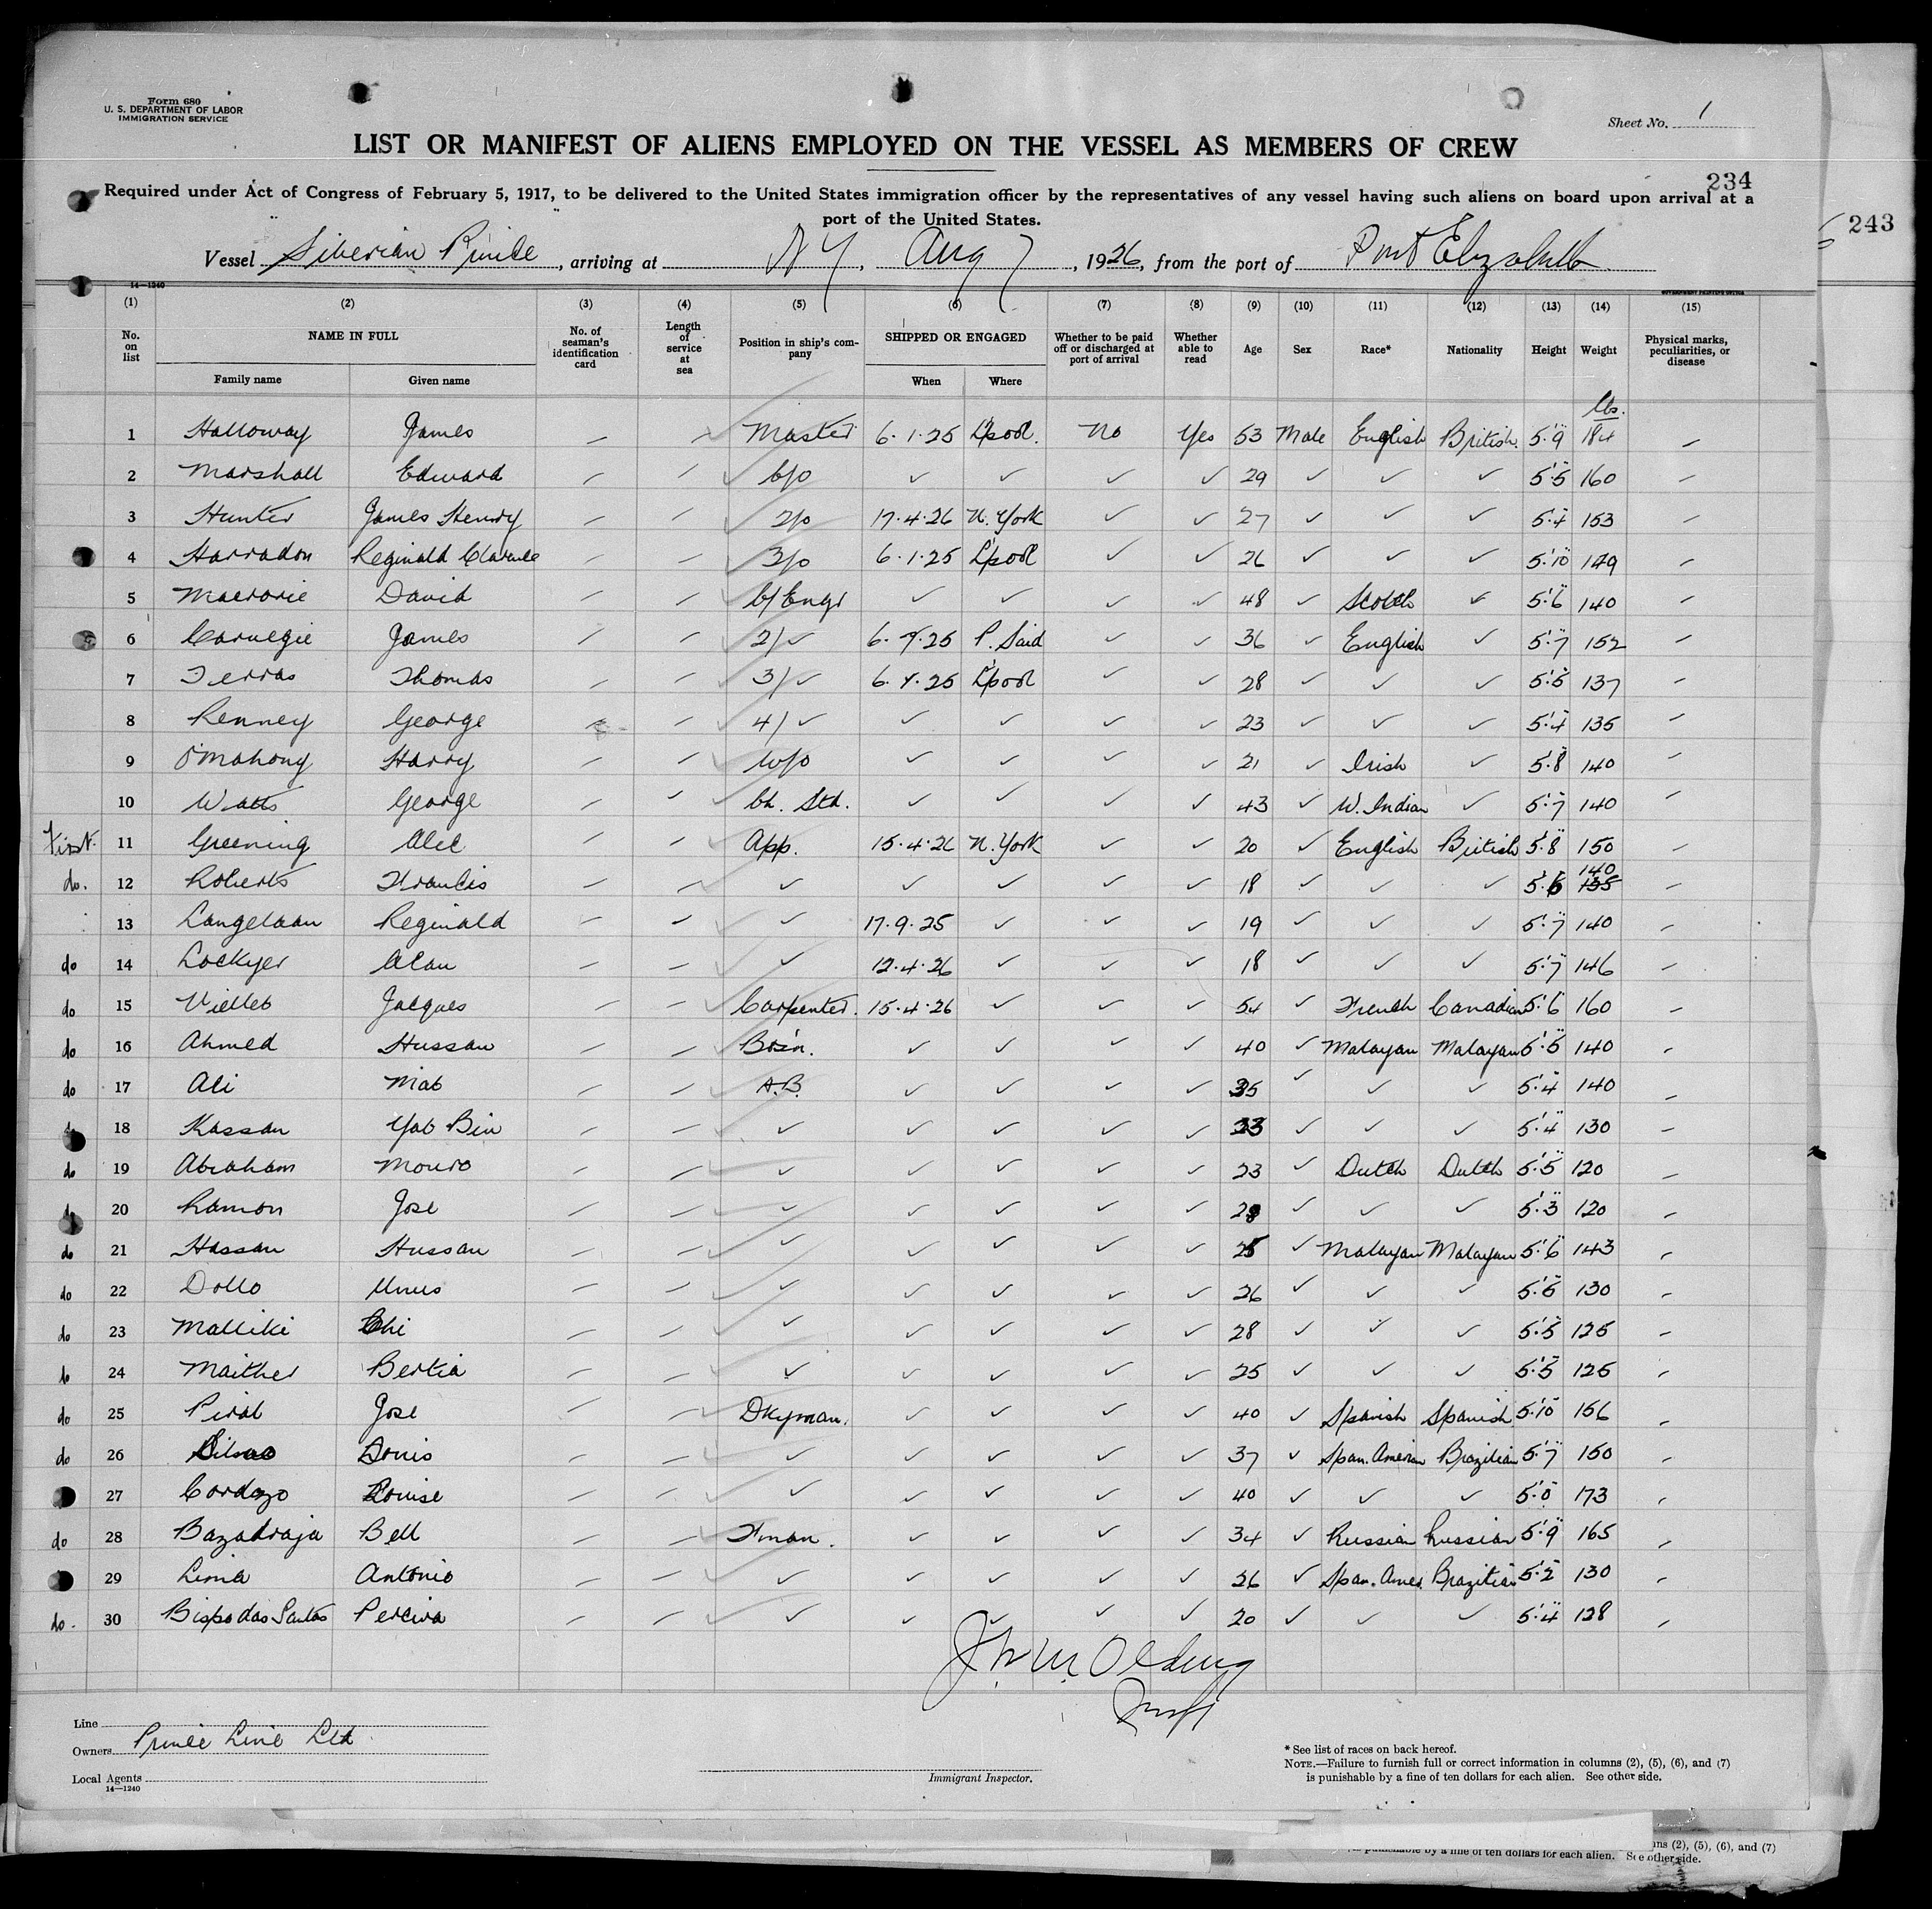 Form 680
U. S. DEPARTMENT OF LABOR
IMMIGRATION SERVICE
Sheet No. 1
LIST OR MANIFEST OF ALIENS EMPLOYED ON THE VESSEL AS MEMBERS OF CREW
234
Required under Act of Congress of February 5, 1917, to be delivered to the United States immigration officer by the representatives of any vessel having such aliens on board upon arrival at a
port of the United States.
243
Vessel Siberian Prince, arriving at N Y, Aug 7, 1926, from the port of Port Elizabeth
14—1240
(1) (2) (3) (4) (5) (6) (7) (8) (9) (10) (11) (12) (13) (14) (15)
No. on list NAME IN FULL No. of seaman's identification card Length of service at sea Position in ship's company SHIPPED OR ENGAGED Whether to be paid off or discharged at port of arrival Whether able to read Age Sex Race* Nationality Height Weight Physical marks, peculiarities, or disease
Family name Given name When Where
lbs.
1 Holloway James — — Master 6.1.25 L'pool. No Yes 53 Male English British 5'.9" 184 —
2 Marshall Edward — — C/O ✓ ✓ ✓ ✓ 29 ✓ ✓ ✓ 5'.5" 160 —
3 Hunter James Henry — — 2/0 17.4.26 N. York ✓ ✓ 27 ✓ ✓ ✓ 5'.4" 153 —
4 Harradon Reginald Clarence — — 3/0 6.1.25 L'pool ✓ ✓ 26 ✓ ✓ ✓ 5'.10" 149 —
5 Macrorie David — — C/Engr ✓ ✓ ✓ ✓ 48 ✓ Scotch ✓ 5'.6" 140 —
6 Carnegie James — — 2/ ✓ 6.7.25 P. Said ✓ ✓ 36 ✓ English ✓ 5'.7" 152 —
7 Ferras Thomas — — 3/ ✓ 6.7.25 L'pool ✓ ✓ 28 ✓ ✓ ✓ 5'.5" 137 —
8 Renney George — — 4/ ✓ ✓ ✓ ✓ ✓ 23 ✓ ✓ ✓ 5'.4" 135 —
9 O'Mahony Harry — — W/O ✓ ✓ ✓ ✓ 21 ✓ Irish ✓ 5'.8" 140 —
10 Watts George — — Ch. Std. ✓ ✓ ✓ ✓ 43 ✓ W. Indian ✓ 5'.7" 140 —
First. 11 Greening Alec — — App. 15.4.26 N. York ✓ ✓ 20 ✓ English British 5'.8" 150 —
do. 12 Roberts Francis — — ✓ ✓ ✓ ✓ ✓ 18 ✓ ✓ ✓ 5'.6" 140 135 —
13 Langelaan Reginald — — ✓ 17.9.25 ✓ ✓ ✓ 19 ✓ ✓ ✓ 5'.7" 140 —
do 14 Lockyer Alan — — ✓ 12.4.26 ✓ ✓ ✓ 18 ✓ ✓ ✓ 5'.7" 146 —
do 15 Viellet Jacques — — Carpenter. 15.4.26 ✓ ✓ ✓ 54 ✓ French Canadian 5'.6" 160 —
do 16 Ahmed Hussan — — Bos'n. ✓ ✓ ✓ ✓ 40 ✓ Malayan Malayan 5'.5" 140 —
do 17 Ali Mat — — A.B. ✓ ✓ ✓ ✓ 35 ✓ ✓ ✓ 5'.4" 140 —
18 Kassan Yab Bin — — ✓ ✓ ✓ ✓ ✓ 33 ✓ ✓ ✓ 5'.4" 130 —
do 19 Abraham Mouro — — ✓ ✓ ✓ ✓ ✓ 23 ✓ Dutch Dutch 5'.5" 120 —
do 20 Ramon Jose — — ✓ ✓ ✓ ✓ ✓ 28 ✓ ✓ ✓ 5'.3" 120 —
do 21 Hassan Hussan — — ✓ ✓ ✓ ✓ ✓ 25 ✓ Malayan Malayan 5'.6" 143 —
do 22 Dollo Unus — — ✓ ✓ ✓ ✓ ✓ 26 ✓ ✓ ✓ 5'.5" 130 —
do 23 Malliki Chi — — ✓ ✓ ✓ ✓ ✓ 28 ✓ ✓ ✓ 5'.5" 125 —
do 24 Maither Bertia — — ✓ ✓ ✓ ✓ ✓ 25 ✓ ✓ ✓ 5'.5" 125 —
do 25 Pirat Jose — — Dkyman. ✓ ✓ ✓ ✓ 40 ✓ Spanish Spanish 5'.10" 156 —
do 26 Louis — — ✓ ✓ ✓ ✓ ✓ 37 ✓ Span. American Brazilian 5'.7" 150 —
27 Cordozo Louise — — ✓ ✓ ✓ ✓ ✓ 40 ✓ ✓ ✓ 5'.8" 173 —
do 28 Bazadraja Bell — — Fman. ✓ ✓ ✓ ✓ 34 ✓ Russian Russian 5'.9" 165 —
29 Lima Antonio — — ✓ ✓ ✓ ✓ ✓ 26 ✓ Span. Amer. Brazilian 5'.2" 130 —
do. 30 Bispo das Santos Perciva — — ✓ ✓ ✓ ✓ ✓ 20 ✓ ✓ ✓ 5'.4" 128 —
Line
Owners Prince Line Ltd
Local Agents
14—1240
Immigrant Inspector.
* See list of races on back hereof.
NOTE.—Failure to furnish full or correct information in columns (2), (5), (6), and (7)
is punishable by a fine of ten dollars for each alien. See other side.
(2), (5), (6), and (7)
by a fine of ten dollars for each alien. See other side.